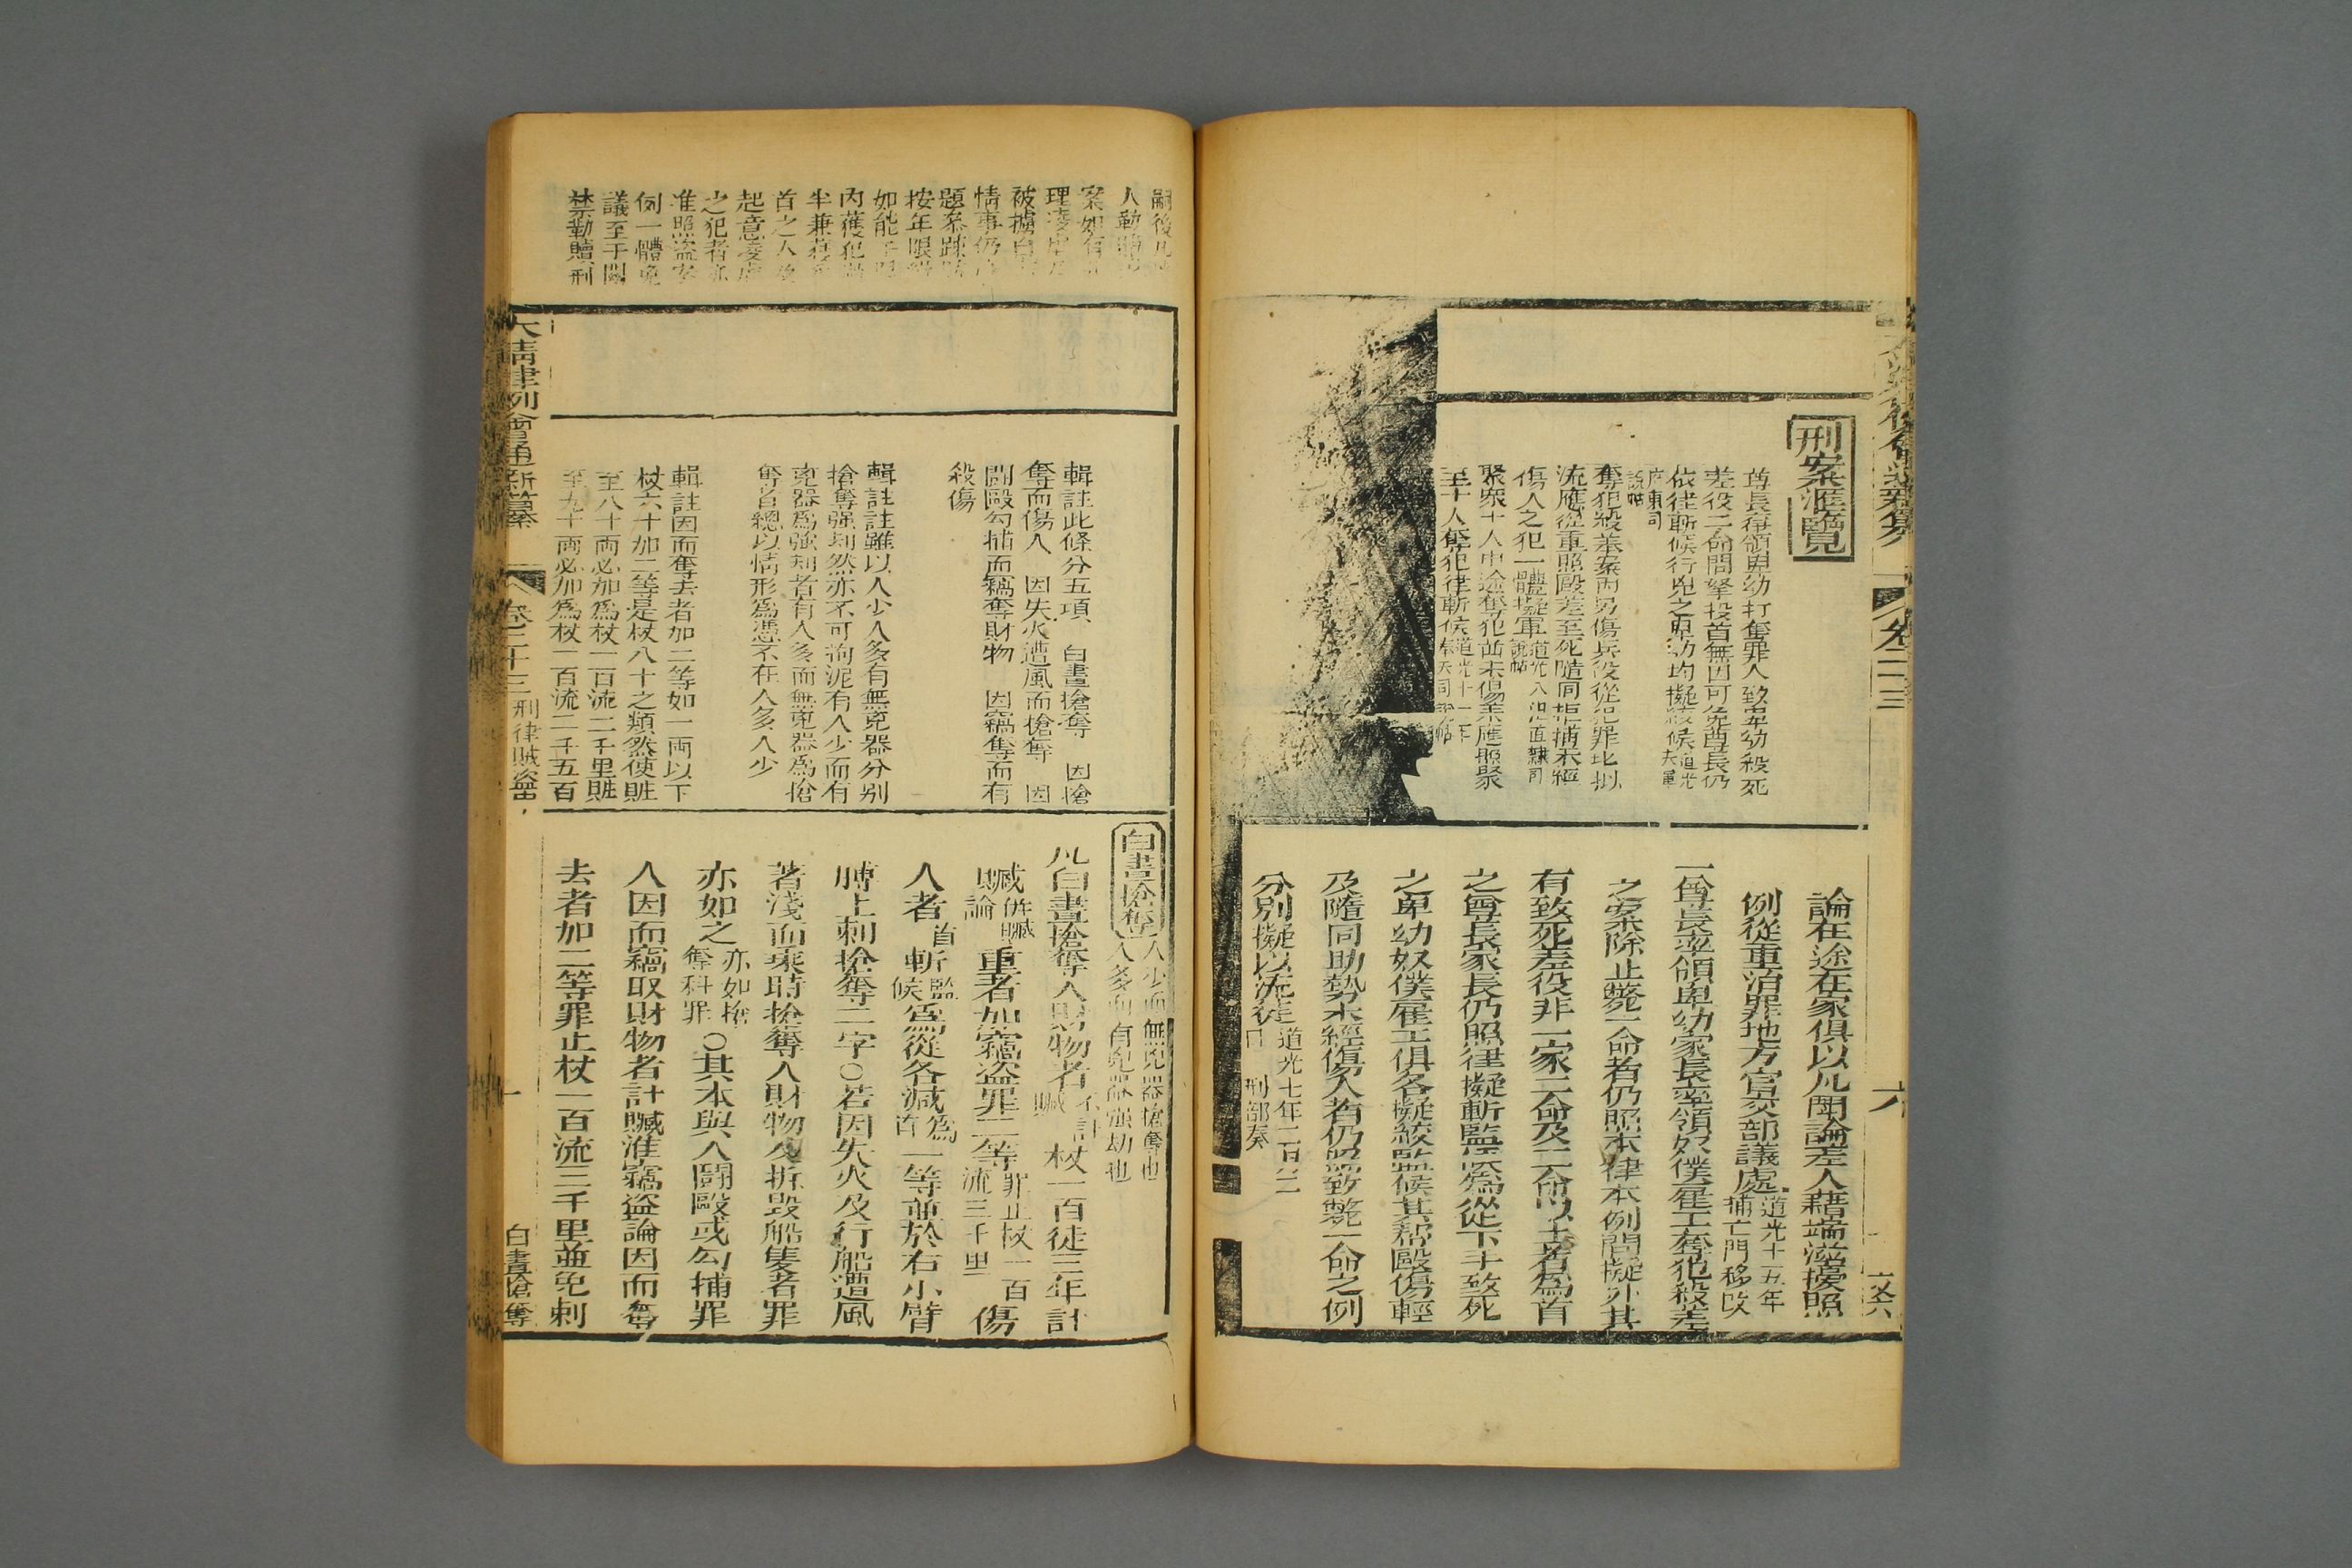 刑案滙覽
尊長率領卑幼打奪罪人致卑幼殺死
差役二命問拏投首無因可免尊長仍
依律斬候行兇之卑幼均擬絞候
廣東司
說帖
奪犯殺差案內另傷兵役從犯罪止擬
流應從重照毆差至死隨同拒捕未經
傷人之犯一體擬軍道光八年直隸司說帖
聚眾十人中途奪犯尚未傷差應照聚
至十人奪犯律斬候道光十一年奉天司說帖
論在途在家俱以凡鬭論差人藉端滋擾照
例從重治罪地方官交部議處道光十五年捕亡門移改
一尊長率領卑幼家長率領奴僕雇工奪犯殺差
之案除止斃一命者仍照本律本例問擬外其
有致死差役非一家二命及二命以上者為首
之尊長家長仍照律擬斬監候為從下手致死
之卑幼奴僕雇工俱各擬絞監候其幫毆傷輕
及隨同助勢未經傷人者仍照致斃一命之例
分別擬以流徒
六
嗣後
人勒贖
案如有
理凌虐
被擄
情事仍
題參疎
按年限
如能
內獲犯
半兼
首之人
起意凌虐
之犯者亦
准照盜案
例一體
議至于關
禁勒贖刑
輯註此條分五項 白晝搶奪 因搶
奪而傷人 因失火遭風而搶奪 因
鬭毆勾捕而竊奪財物 因竊奪而有
殺傷
輯註註雖以人少人多有無兇器分別
搶奪强刼然亦不可拘泥有人少而有
兇器為強刼者有人多而無兇器為搶
奪者總以情形為憑不在人多人少
輯註因而奪去者加二等如一兩以下
杖六十加二等是杖八十之類然使贓
至八十兩必加為杖一百流二千里贓
至九十兩必加為杖一百流二千五百
白晝搶奪人少而無兇器搶奪也人多而有兇器强劫也
凡白晝搶奪人財物者不計贓杖一百徒三年計
贓併贓論重者加竊盜罪二等罪止杖一百流三千里傷
人者首斬監候為從各減為首一等並於右小臂
膊上刺搶奪二字〇若因失火及行船遭風
著淺而乘時搶奪人財物及拆毀船隻者罪
亦如之亦如搶奪科罪〇其本與人鬭毆或勾捕罪
人因而竊取財物者計贓准竊盜論因而奪
去者加二等罪止杖一百流三千里並免刺
大清律例會通新纂 卷二十三 刑律賊盜中 一 白晝搶奪